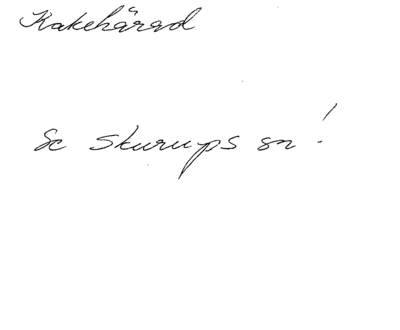 Kakehärad
Se Skurups sn!